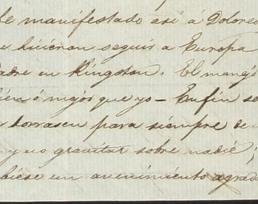 he manifestado asi á Dolores
hicieran seguir a Europa
padre en Kingston. El mang
ó mejor que yo - Enfin se
borrasen para siempre de
y no gravitar sobre nadie,
diese un avenimiento agrada